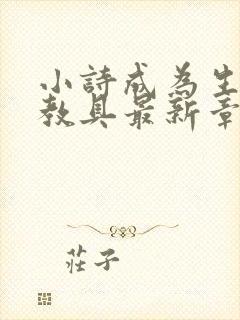 小詩成為生
教具最新章
莊子